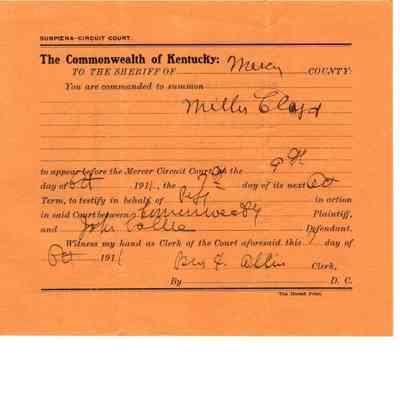 SUBPŒNA–CIRCUIT COURT.
The Commonwealth of Kentucky:
TO THE SHERIFF OF Mercer COUNTY:
You are commanded to summon
Miller Cloyd
to appear before the Mercer Circuit Court, on the 9th
day of Oct 1911, the 7th day of its next Oct
Term, to testify in behalf of Plff in action
in said Court between Commonwealth Plaintiff,
and John Collie Defendant.
Witness my hand as Clerk of the Court aforesaid this day of
Oct 1911 Ben F. Allin Clerk,
By D. C.
The Herald Print